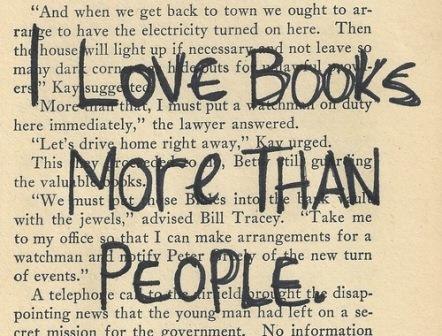 "And when we get back to town we ought to ar-
range to have the electricity turned on here. Then
the house will light up if necessary and not leave so
many dark for
ers," Kay suggested.
I LOVE BOOKS
"More that, I must put a watchman on duty
here immediately," the lawyer answered.
"Let's drive home right away," Kay urged.
This to do, Betty still guarding
the valuable books.
MORE THAN
"We must put those Bibles into the bank vault
with the jewels," advised Bill Tracey. "Take me
to my office so that I can make arrangements for a
watchman and notify Peter of the new turn
of events."
PEOPLE.
A telephone call to the airfield brought the disap-
pointing news that the young man had left on a se-
cret mission for the government. No information